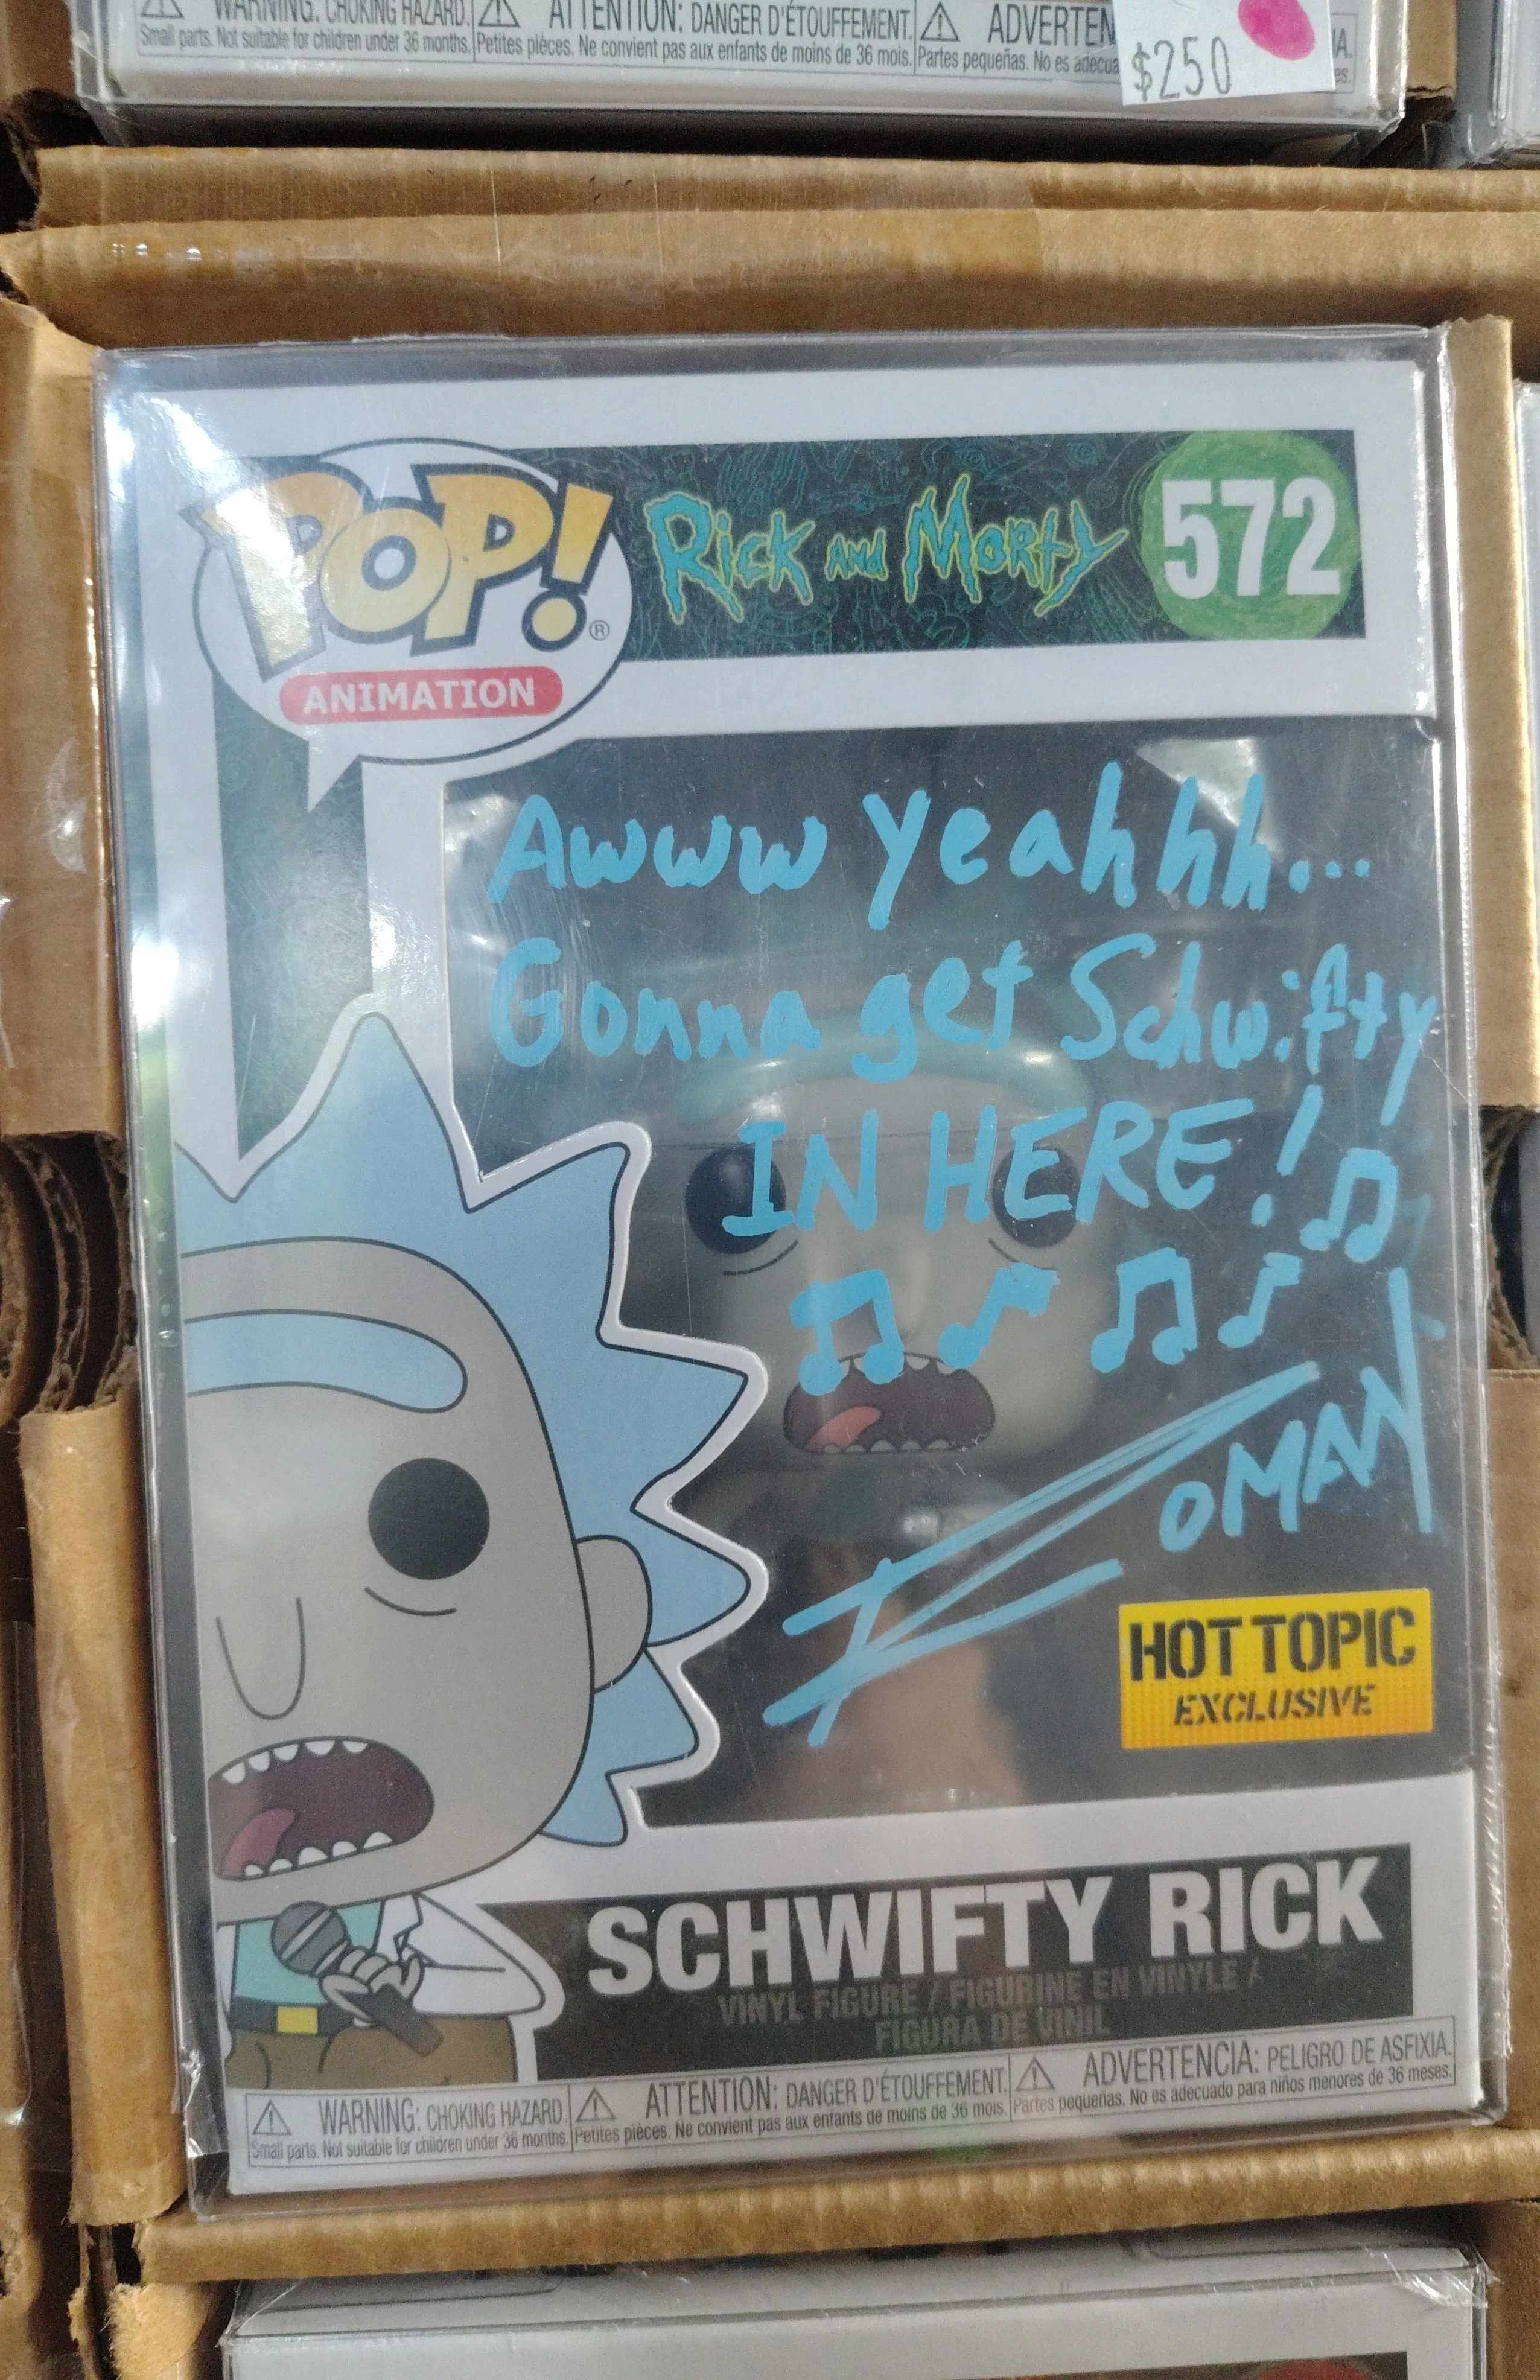 WARNING: CHOKING HAZARD. ATTENTION: DANGER D'ÉTOUFFEMENT. ADVERTEN
Small parts. Not suitable for children under 36 months. Petites pièces. Ne convient pas aux enfants de moins de 36 mois. Partes pequeñas. No es adecua
$250
POP! ®
ANIMATION
Rick and Morty
572
Awww yeahhh...
Gonna get Schwifty
IN HERE!
ROMAN
HOT TOPIC
EXCLUSIVE
SCHWIFTY RICK
VINYL FIGURE / FIGURINE EN VINYLE /
FIGURA DE VINIL
WARNING: CHOKING HAZARD. ATTENTION: DANGER D'ÉTOUFFEMENT. ADVERTENCIA: PELIGRO DE ASFIXIA.
Small parts. Not suitable for children under 36 months. Petites pièces. Ne convient pas aux enfants de moins de 36 mois. Partes pequeñas. No es adecuado para niños menores de 36 meses.